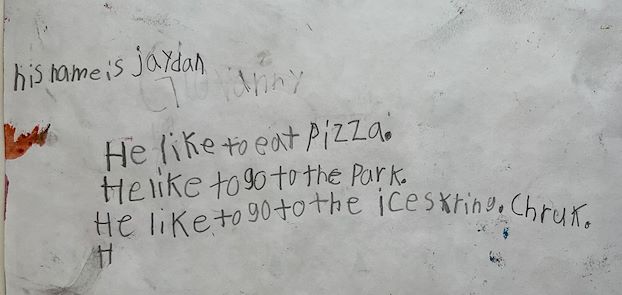 his name is jaydan
He like to eat Pizza.
He like to go to the Park.
He like to go to the ice skring. Chruk.
H